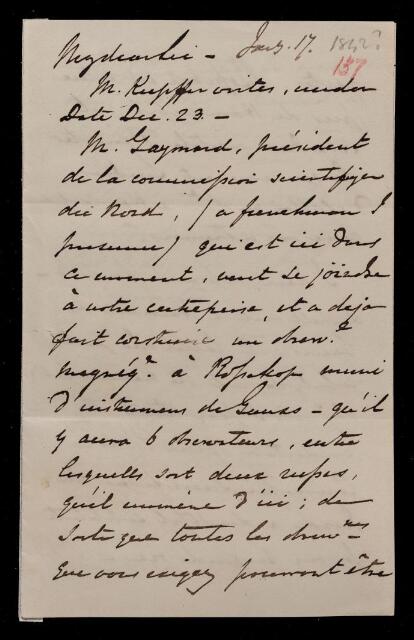 My dear Sir — Jany. 17. 1842?
157
M. Kupffer writes, under
Date Dec. 23. —
M. Gaymard, président
de la commission scientifique
du Nord, (a frenchman I
presume) qui est ici dans
ce moment, veut se joindre
à votre entreprise, et a deja
fait construire un obserre.
magnéq. à Rossekop muni
d'instrumens de Gauss — qu'il
y aura 6 observateurs, entre
lesquelles sont deux russes,
qu'il emmène d'ici; de
sorte que toutes les observnes
que vous exigez pourront être